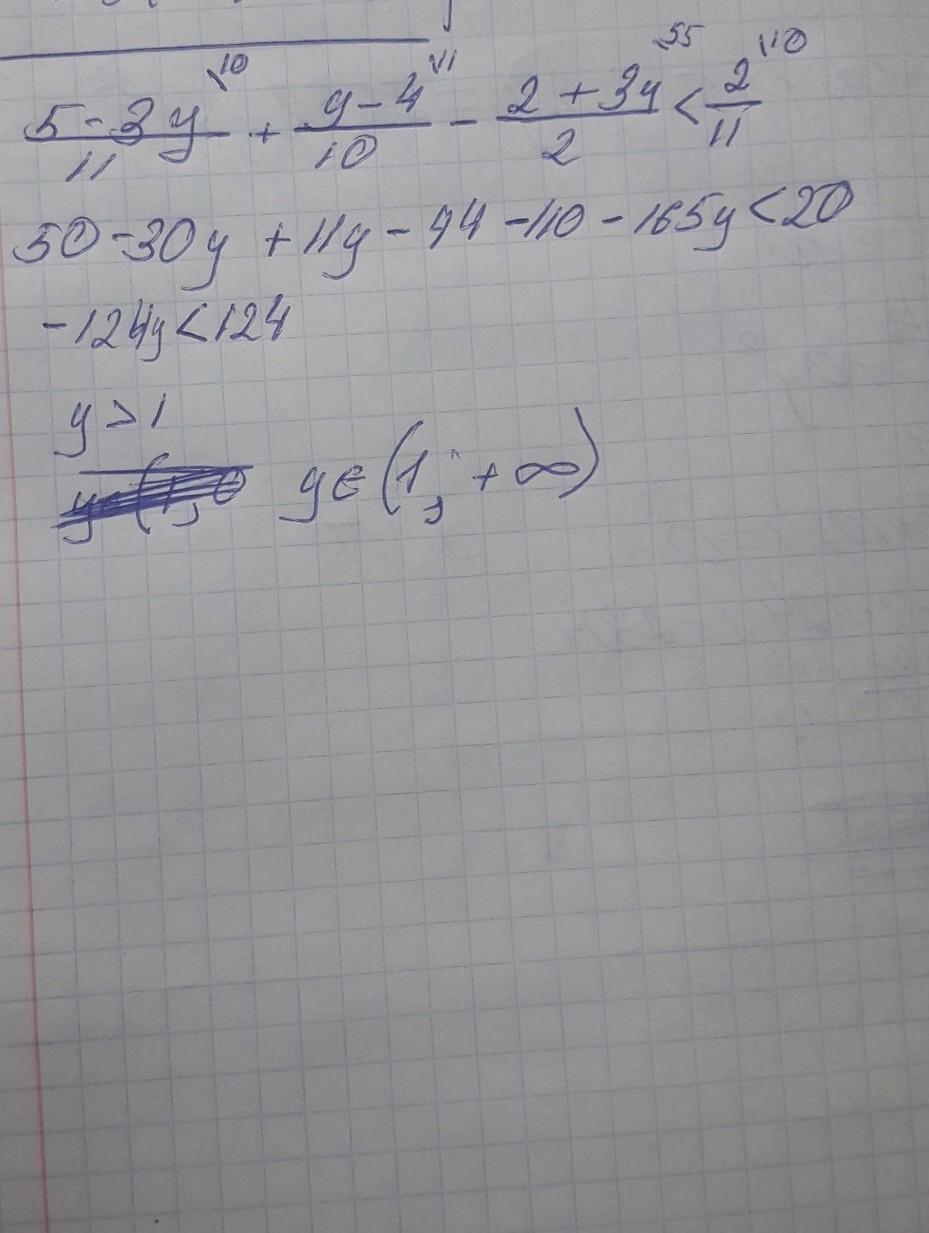 5-3y\10 / 11 + y-4\11 / 10 - 2+3y\55 / 2 < 2\10 / 11
50-30y+11y-44-110-165y<20
-124y<124
y>1
y∈(1; +∞)